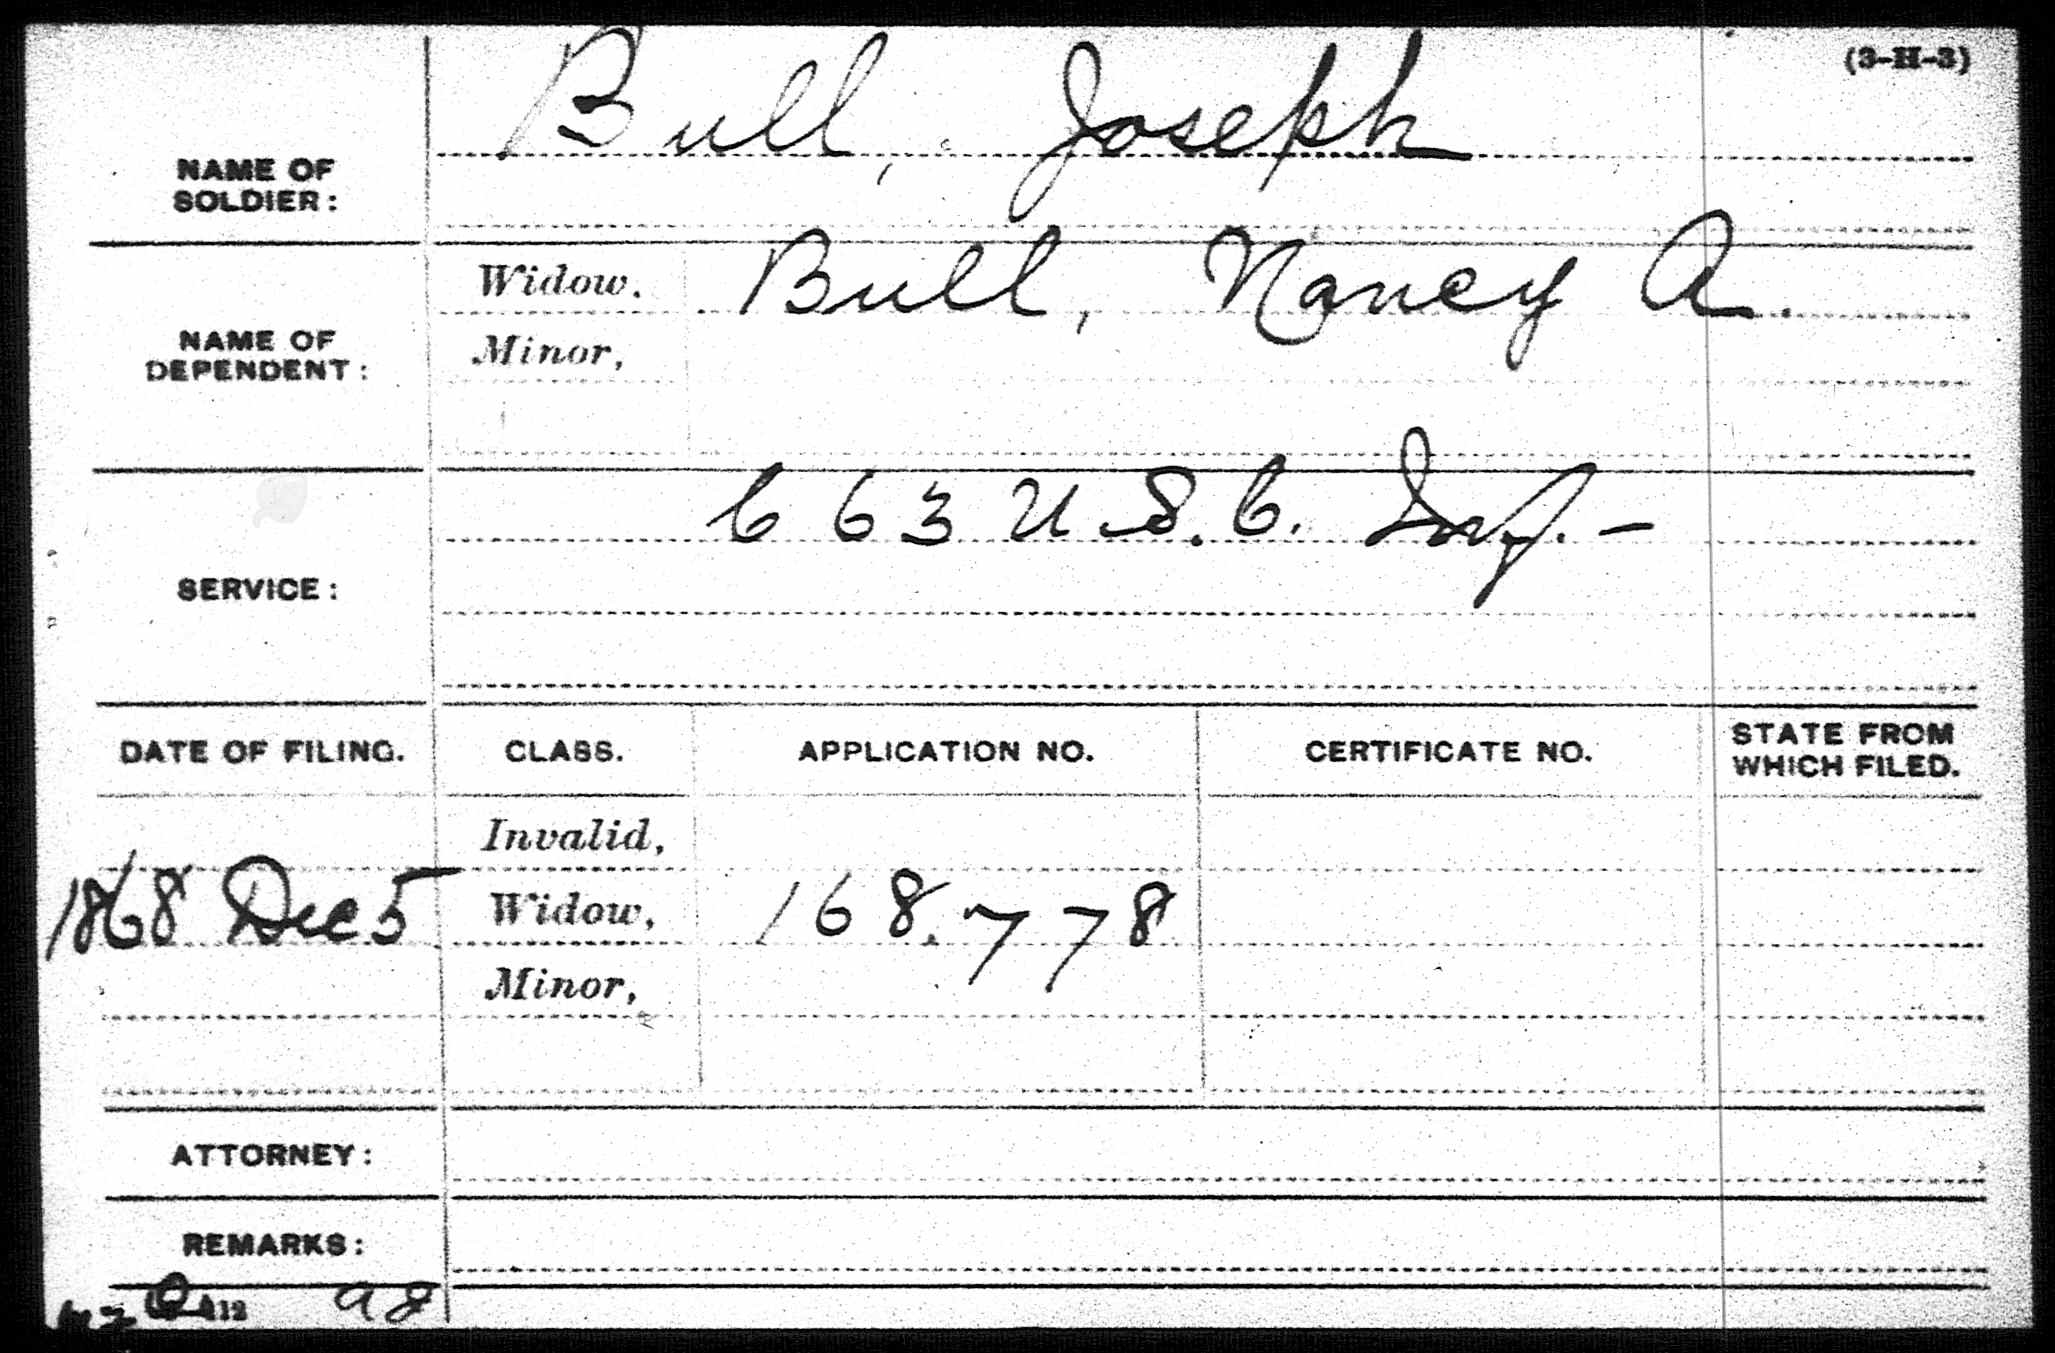 (3-H-3)
Bull, Joseph
NAME OF
SOLDIER:
Widow. Bull, Nancy A.
Minor,
NAME OF
DEPENDENT:
C 63 U.S.C. Inf. -
SERVICE:
DATE OF FILING. CLASS. APPLICATION NO. CERTIFICATE NO. STATE FROM
WHICH FILED.
Invalid,
1868 Dec 5 Widow, 168.778
Minor,
ATTORNEY:
REMARKS: